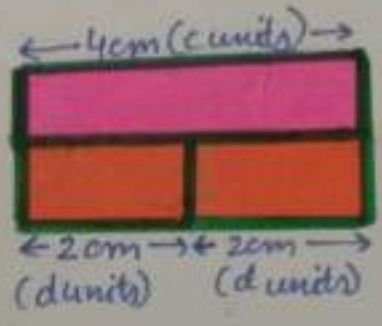 4cm (c units)
2cm 2cm
(d units) (d units)